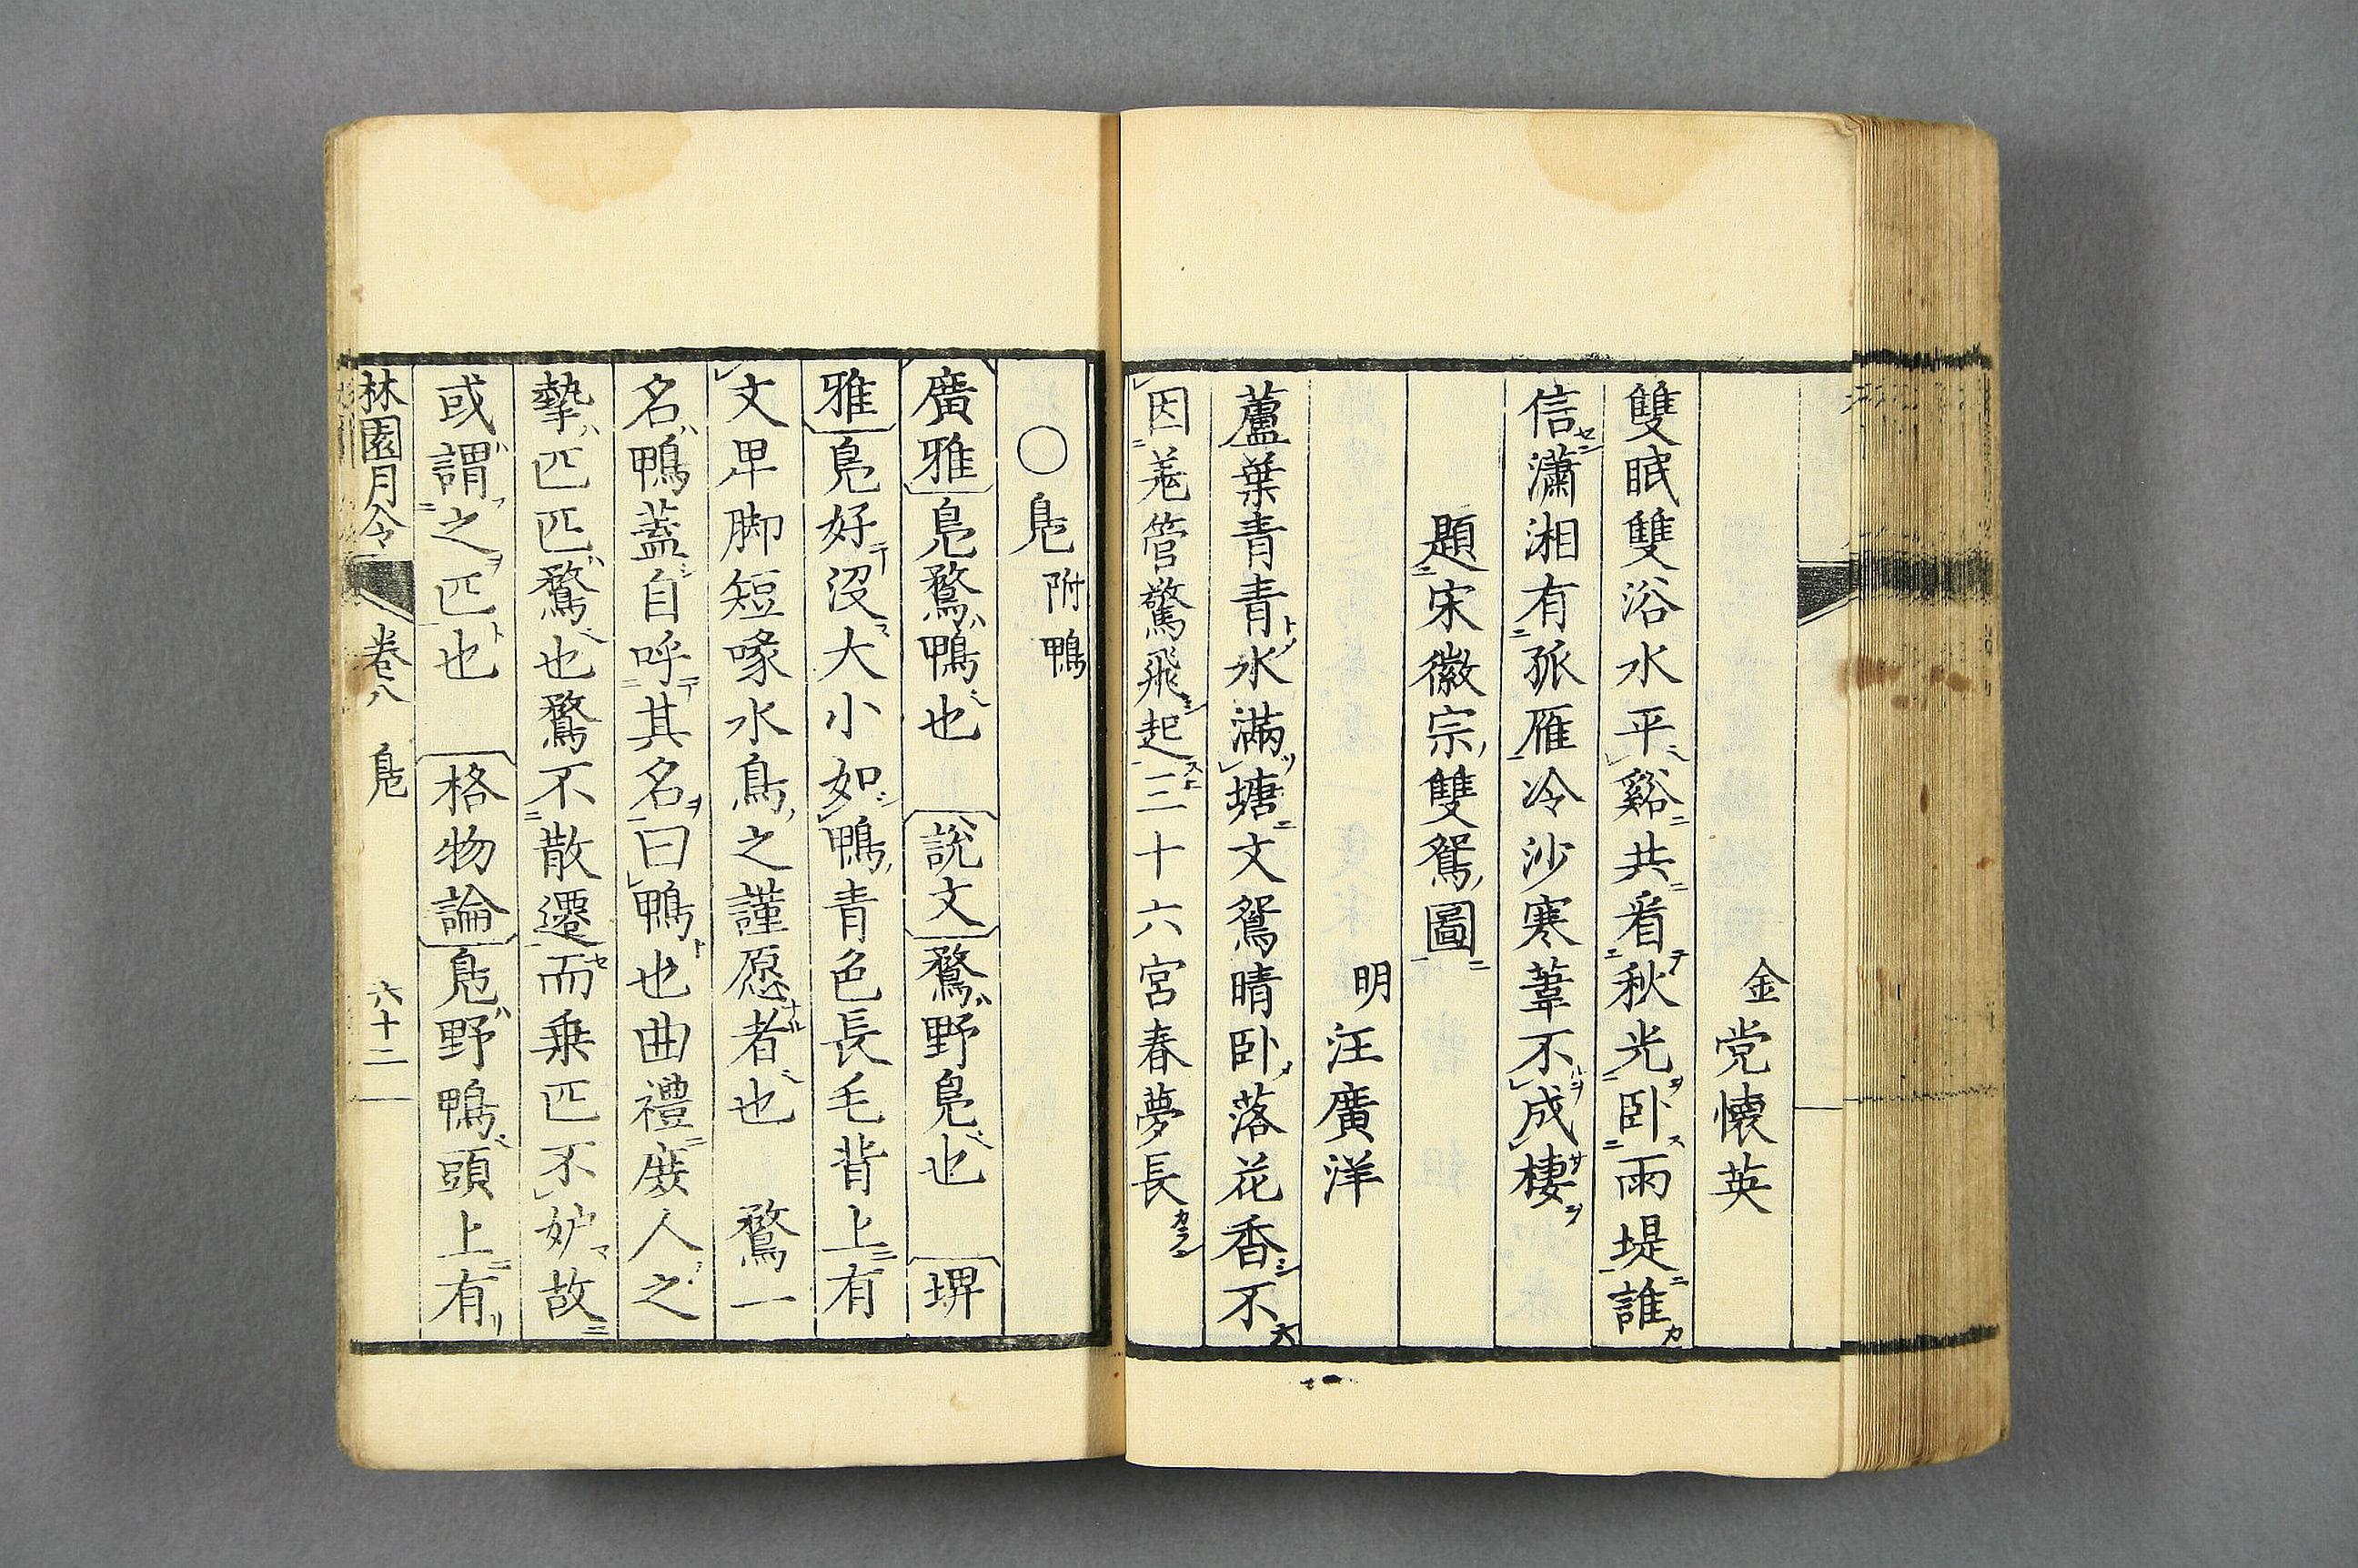 金党懷英
雙眠雙浴水平谿共看秋光卧雨堤誰
信瀟湘有孤雁冷沙寒葦不成棲
題宋徽宗雙鴛圖
明汪廣洋
蘆葉青青水滿塘文鴛晴卧落花香不
因羌管驚飛起三十六宮春夢長
○鳬附鴨
廣雅鳬鶩鴨也 説文鶩野鳬也 埤
雅鳬好没大小如鴨青色長毛背上有
文卑脚短喙水鳥之謹愿者也 鶩一
名鴨蓋自呼其名曰鴨也曲禮庻人之
摯匹匹鶩也鶩不散遷而乗匹不妒故
或謂之匹也 格物論鳬野鴨頭上有
林園月令 卷八 鳬 六十二